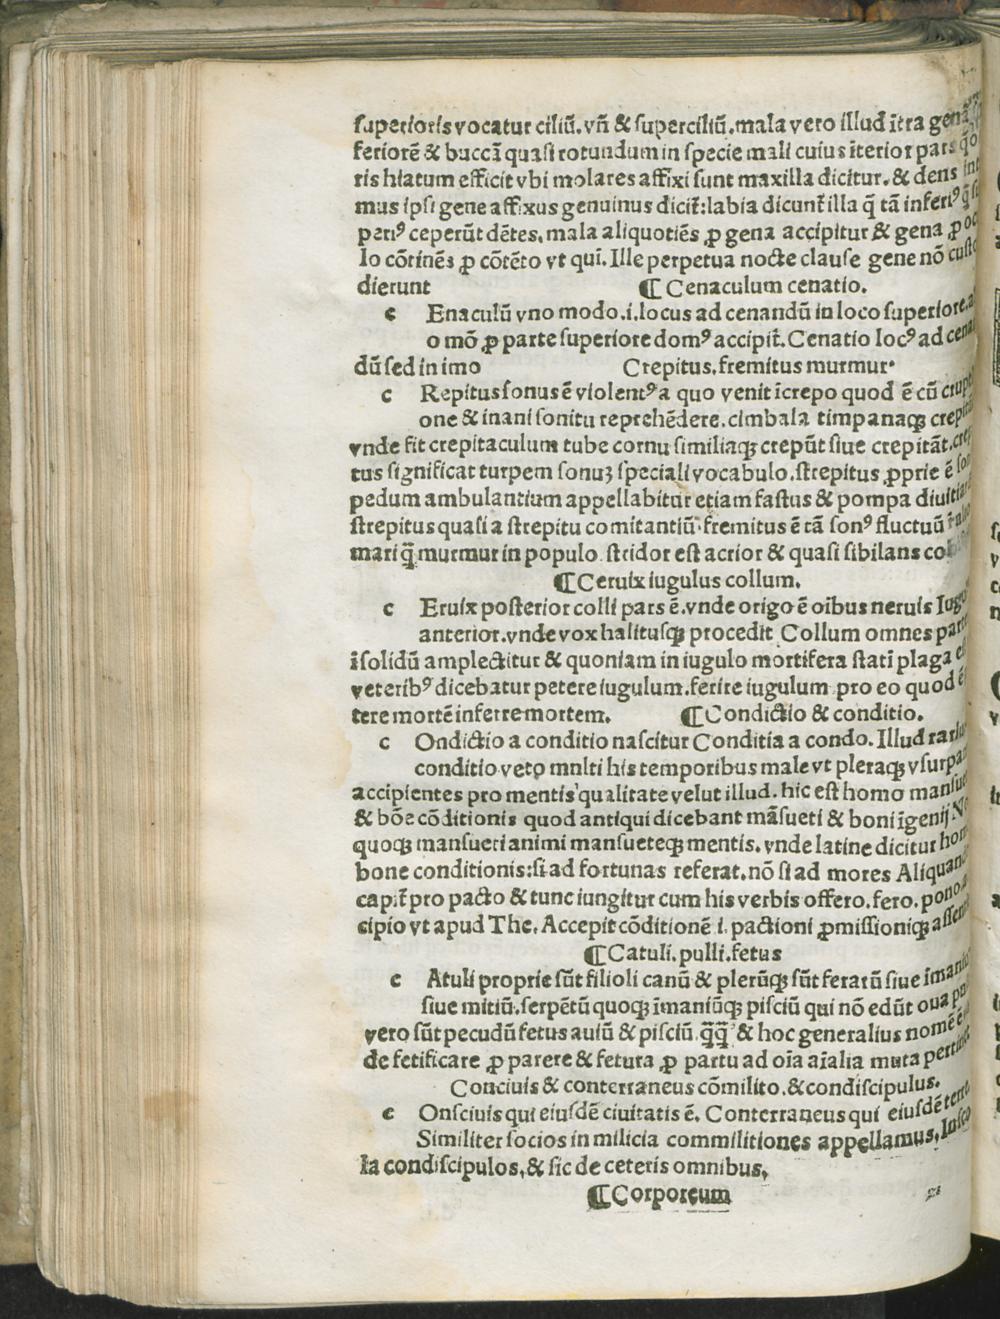 superioris vocatur ciliū. vñ & superciliū. mala vero illud ītra genā
feriorē & buccā quasi rotundum in specie mali cuius īterior pars
ris hiatum efficit vbi molares affixi sunt maxilla dicitur. & dens
mus ipsi gene affixus genuinus dicit̄: labia dicunt̄ illa q̄ tā inferiꝰ
periꝰ ceperūt dētes. mala aliquotiēs ꝓ gena accipitur & gena ꝓ
lo cōtinēs ꝓ cōtēto vt qui. Ille perpetua nocte clause gene nō
dierunt ¶ Cenaculum cenatio.
c Enaculū vno modo .i. locus ad cenandū in loco superiore.
o mō ꝓ parte superiore domꝰ accipit̄. Cenatio locꝰ ad
dū sed in imo Crepitus. fremitus murmur
c Repitus sonus ē violentꝰ a quo venit īcrepo quod ē cū
one & inani sonitu reprehēdere. cimbala timpanaqꝫ
vnde fit crepitaculum tube cornu similiaqꝫ crepūt siue crepitāt.
tus significat turpem sonuꝫ speciali vocabulo. strepitus ꝓprie ē
pedum ambulantium appellabitur etiam fastus & pompa
strepitus quasi a strepitu comitantiū fremitus ē tā sonꝰ fluctuū
mari q̄ murmur in populo stridor est acrior & quasi sibilans
¶ Ceruix iugulus collum.
c Eruix posterior colli pars ē. vnde origo ē oībus neruis
anterior. vnde vox halitusqꝫ procedit Collum omnes
īsolidū amplectitur & quoniam in iugulo mortifera statī plaga
veteribꝰ dicebatur petere iugulum. ferire iugulum pro eo quod
tere mortē inferre mortem. ¶ Condictio & conditio.
c Ondictio a conditio nascitur Conditia a condo. Illud
conditio vero mnlti his temporibus male vt pleraqꝫ
accipientes pro mentis qualitate velut illud. hic est homo
& bōe cōditionis quod antiqui dicebant māsueti & boni īgenij
quoqꝫ mansueti animi mansueteqꝫ mentis. vnde latine dicitur
bone conditionis: si ad fortunas referat. nō si ad mores
capit̄ pro pacto & tunc iungitur cum his verbis offero. fero. pono.
cipio vt apud The. Accepit cōditionē i. pactioni ꝓmissioniqꝫ
¶ Catuli. pulli. fetus
c Atuli proprie sūt filioli canū & plerūqꝫ sūt ferarū siue
siue mitiū. serpētū quoqꝫ īmaniūqꝫ pisciū qui nō edūt oua
vero sūt pecudū fetus auiū & pisciū. q̄q̄ & hoc generalius nomē
de fetificare ꝓ parere & fetura ꝓ partu ad oīa aīalia muta
Conciuis & conterraneus cōmilito. & condiscipulus.
c Onsciuis qui eiusdē ciuitatis ē. Conterraneus qui eiusdē
Similiter socios in milicia commilitiones appellamus.
la condiscipulos, & sic de ceteris omnibus,
¶ Corporeum